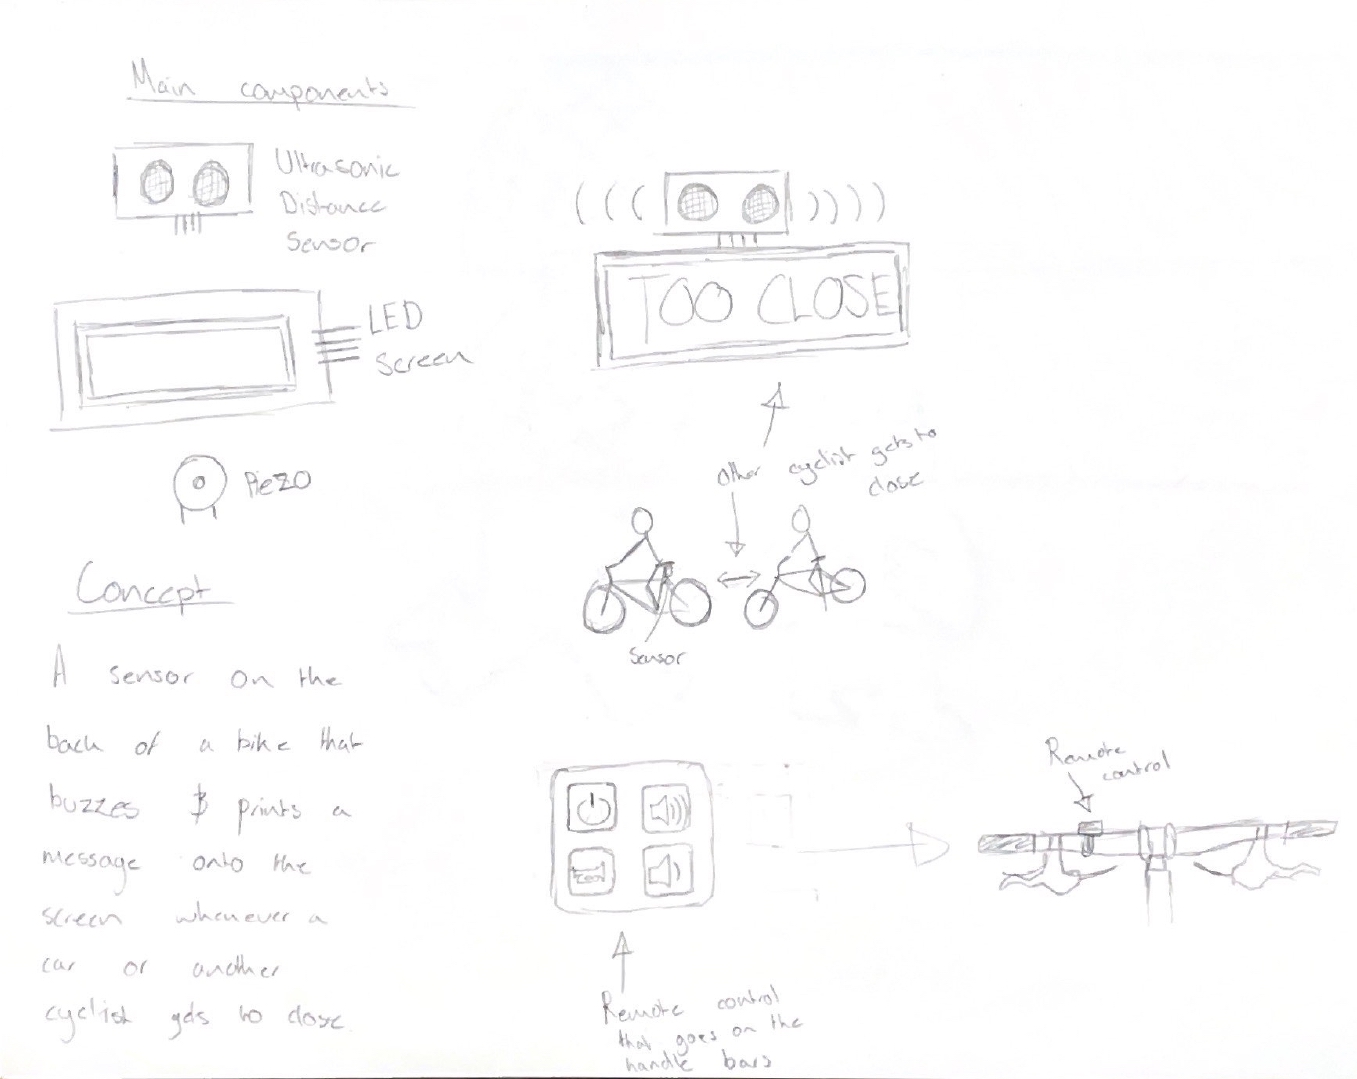 Main components
Ultrasonic
Distance
Sensor
LED
Screen
Piezo
TOO CLOSE
Other cyclist gets to
close
Sensor
Concept
A sensor on the
back of a bike that
buzzes & prints a
message onto the
screen whenever a
car or another
cyclist gets to close
Remote control
that goes on the
handle bars
Remote
control